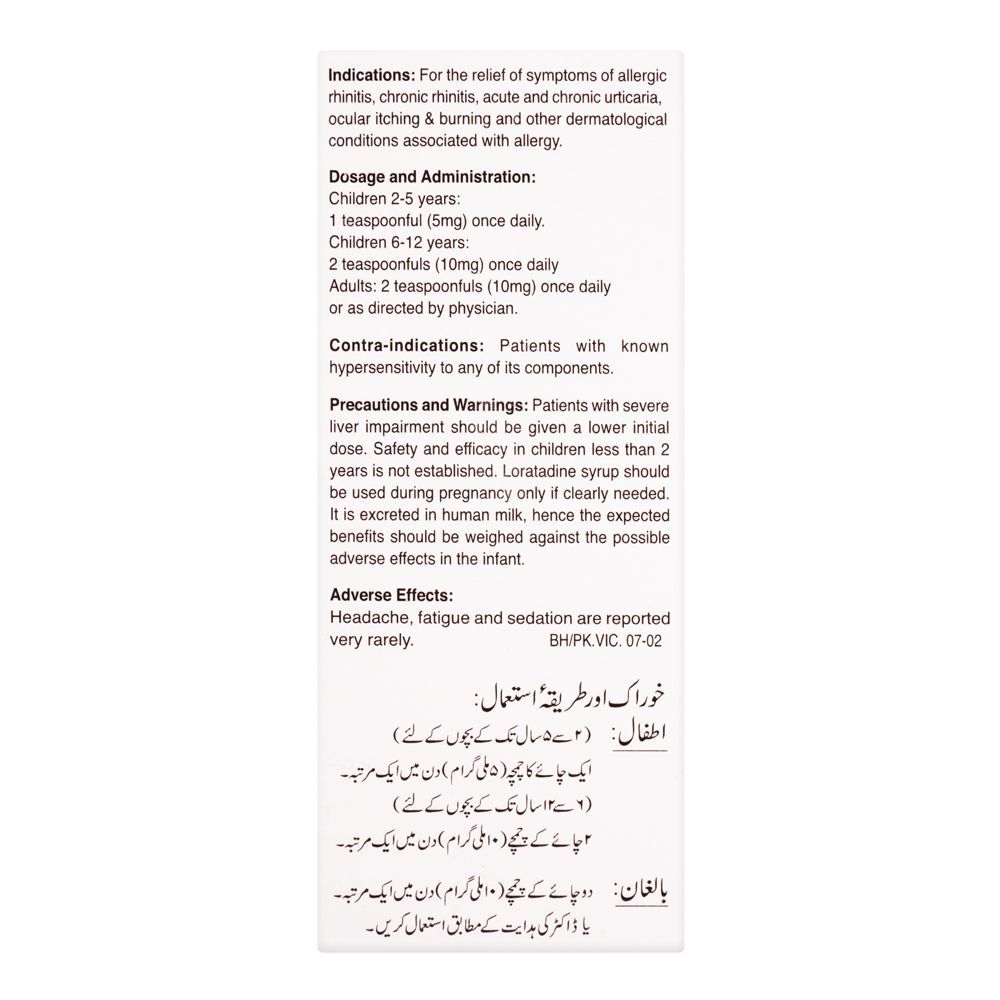 Indications: For the relief of symptoms of allergic
rhinitis, chronic rhinitis, acute and chronic urticaria,
ocular itching & burning and other dermatological
conditions associated with allergy.
Dosage and Administration:
Children 2-5 years:
1 teaspoonful (5mg) once daily.
Children 6-12 years:
2 teaspoonfuls (10mg) once daily
Adults: 2 teaspoonfuls (10mg) once daily
or as directed by physician.
Contra-indications: Patients with known
hypersensitivity to any of its components.
Precautions and Warnings: Patients with severe
liver impairment should be given a lower initial
dose. Safety and efficacy in children less than 2
years is not established. Loratadine syrup should
be used during pregnancy only if clearly needed.
It is excreted in human milk, hence the expected
benefits should be weighed against the possible
adverse effects in the infant.
Adverse Effects:
Headache, fatigue and sedation are reported
very rarely. BH/PK.VIC. 07-02
خوراک اور طریقۂ استعمال:
اطفال: (۲ سے ۵ سال تک کے بچوں کے لئے)
ایک چائے کا چمچہ (۵ ملی گرام) دن میں ایک مرتبہ۔
(۶ سے ۱۲ سال تک کے بچوں کے لئے)
۲ چائے کے چمچے (۱۰ ملی گرام) دن میں ایک مرتبہ۔
بالغان: دو چائے کے چمچے (۱۰ ملی گرام) دن میں ایک مرتبہ۔
یا ڈاکٹر کی ہدایت کے مطابق استعمال کریں۔